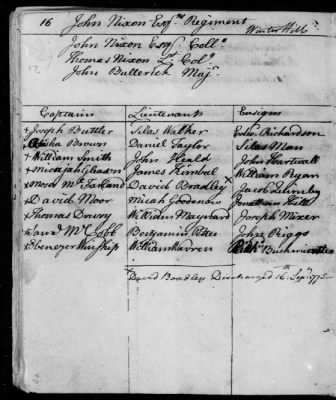 16 John Nixon Esqrs Regiment Winter Hill
John Nixon Esqr. Collo
Thomas Nixon Lt Colo
John Butterick Majr
Captain Lieutenants Ensigns
+Joseph Buttler Silas Walker Richardson
Brown Daniel Taylor Silas Man
+William Smith John Heald John Hartwell
+Micajah Gleason James Kimbal William Ryan
+Moses McFarland David Bradley x Jacob
+David Moor Micah Goodenow Jonathan Hill
+Thomas Drury William Maynard Joseph Mixer
+Saml McCobb Benjamin John Riggs
+Ebenezer Winship William Warren Richd Buckminster
David Bradley Discharged 16th Sepr 1775